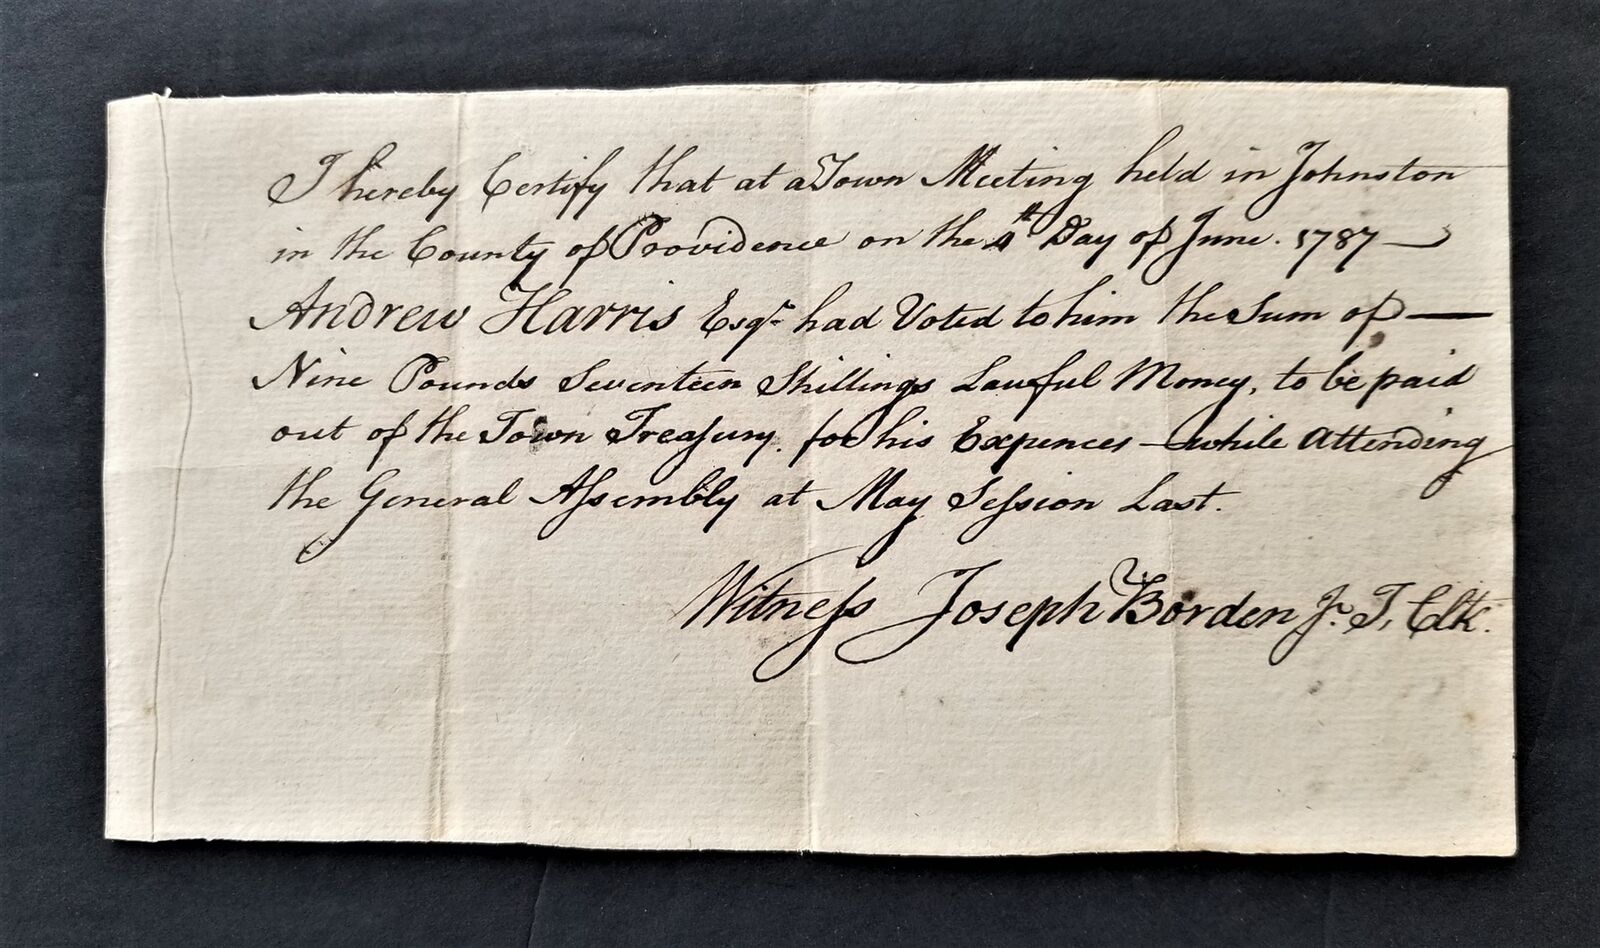 I hereby Certify that at a Town Meeting held in Johnston
in the County of Providence on the 4th Day of June. 1787 —
Andrew Harris Esqr. had Voted to him the Sum of —
Nine Pounds Seventeen Shillings Lawful Money, to be paid
out of the Town Treaſury. for his Expences — while attending
the General Aſsembly at May Seſsion Last.
Witneſs Joseph Borden Jr. T, Clk.